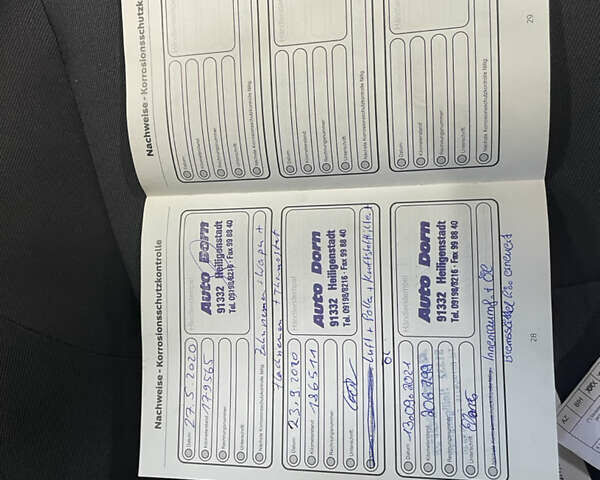 Nachweise - Korrosionsschutzkontrolle
Datum 27.5.2020
Kilometerstand 179565
Rechnungsnummer
Unterschrift
Nächste Korrosionsschutzkontrolle fällig
Händlerstempel
Auto Dorn
91332 Heiligenstadt
Tel. 09198/8216 · Fax 99 88 40
Zahnriemen + Wapu +
Flachriemen + Thermostat
Datum 23.9.2020
Kilometerstand 186511
Rechnungsnummer
Unterschrift
Händlerstempel
Auto Dorn
91332 Heiligenstadt
Tel. 09198/8216 · Fax 99 88 40
Luft + Polle + Kraftstofffilter +
Öl
Datum 13.09.2021
Kilometerstand
Rechnungsnummer
Unterschrift
Händlerstempel
Auto Dorn
91332 Heiligenstadt
Tel. 09198/8216 · Fax 99 88 40
Innenraumf + Öl
28
Nachweise - Korrosionsschutzk
Datum
Kilometerstand
Rechnungsnummer
Unterschrift
Nächste Korrosionsschutzkontrolle fällig
Händlerstempel
Datum
Kilometerstand
Rechnungsnummer
Unterschrift
Nächste Korrosionsschutzkontrolle fällig
Händlerstempel
Datum
Kilometerstand
Rechnungsnummer
Unterschrift
Nächste Korrosionsschutzkontrolle fällig
29